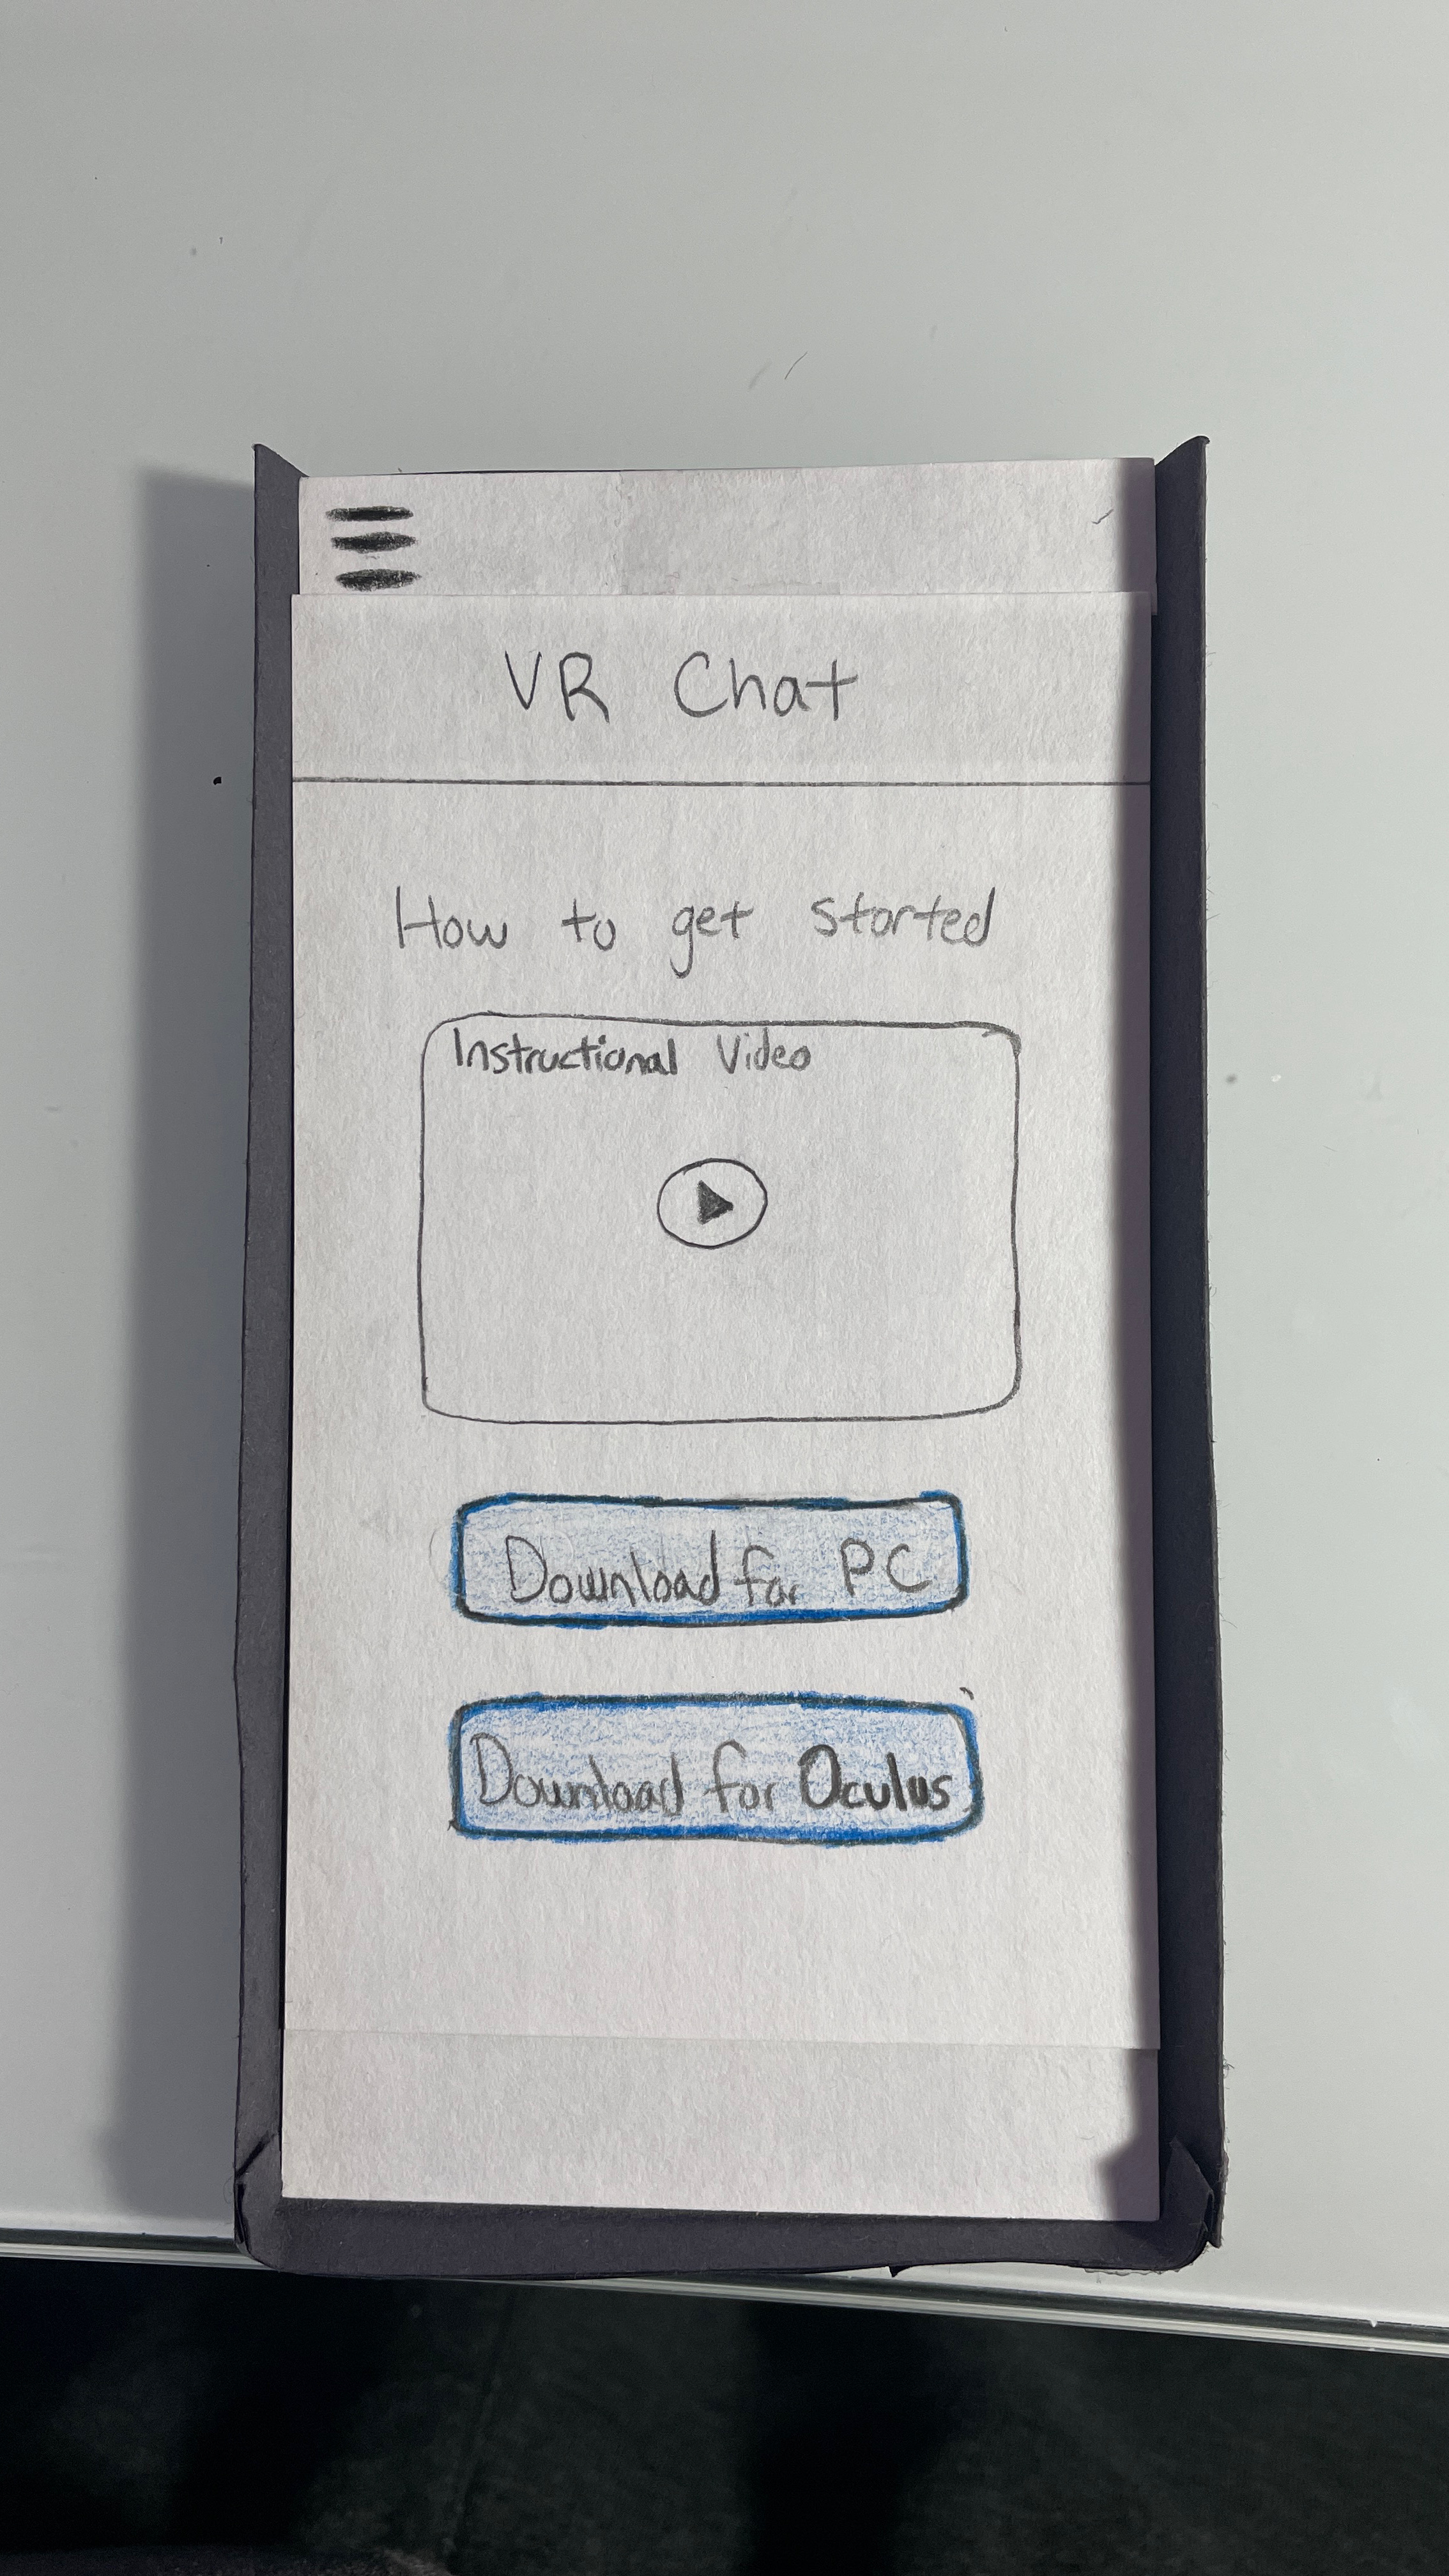 VR Chat
How to get started
Instructional Video
Download for PC
Download for Oculus